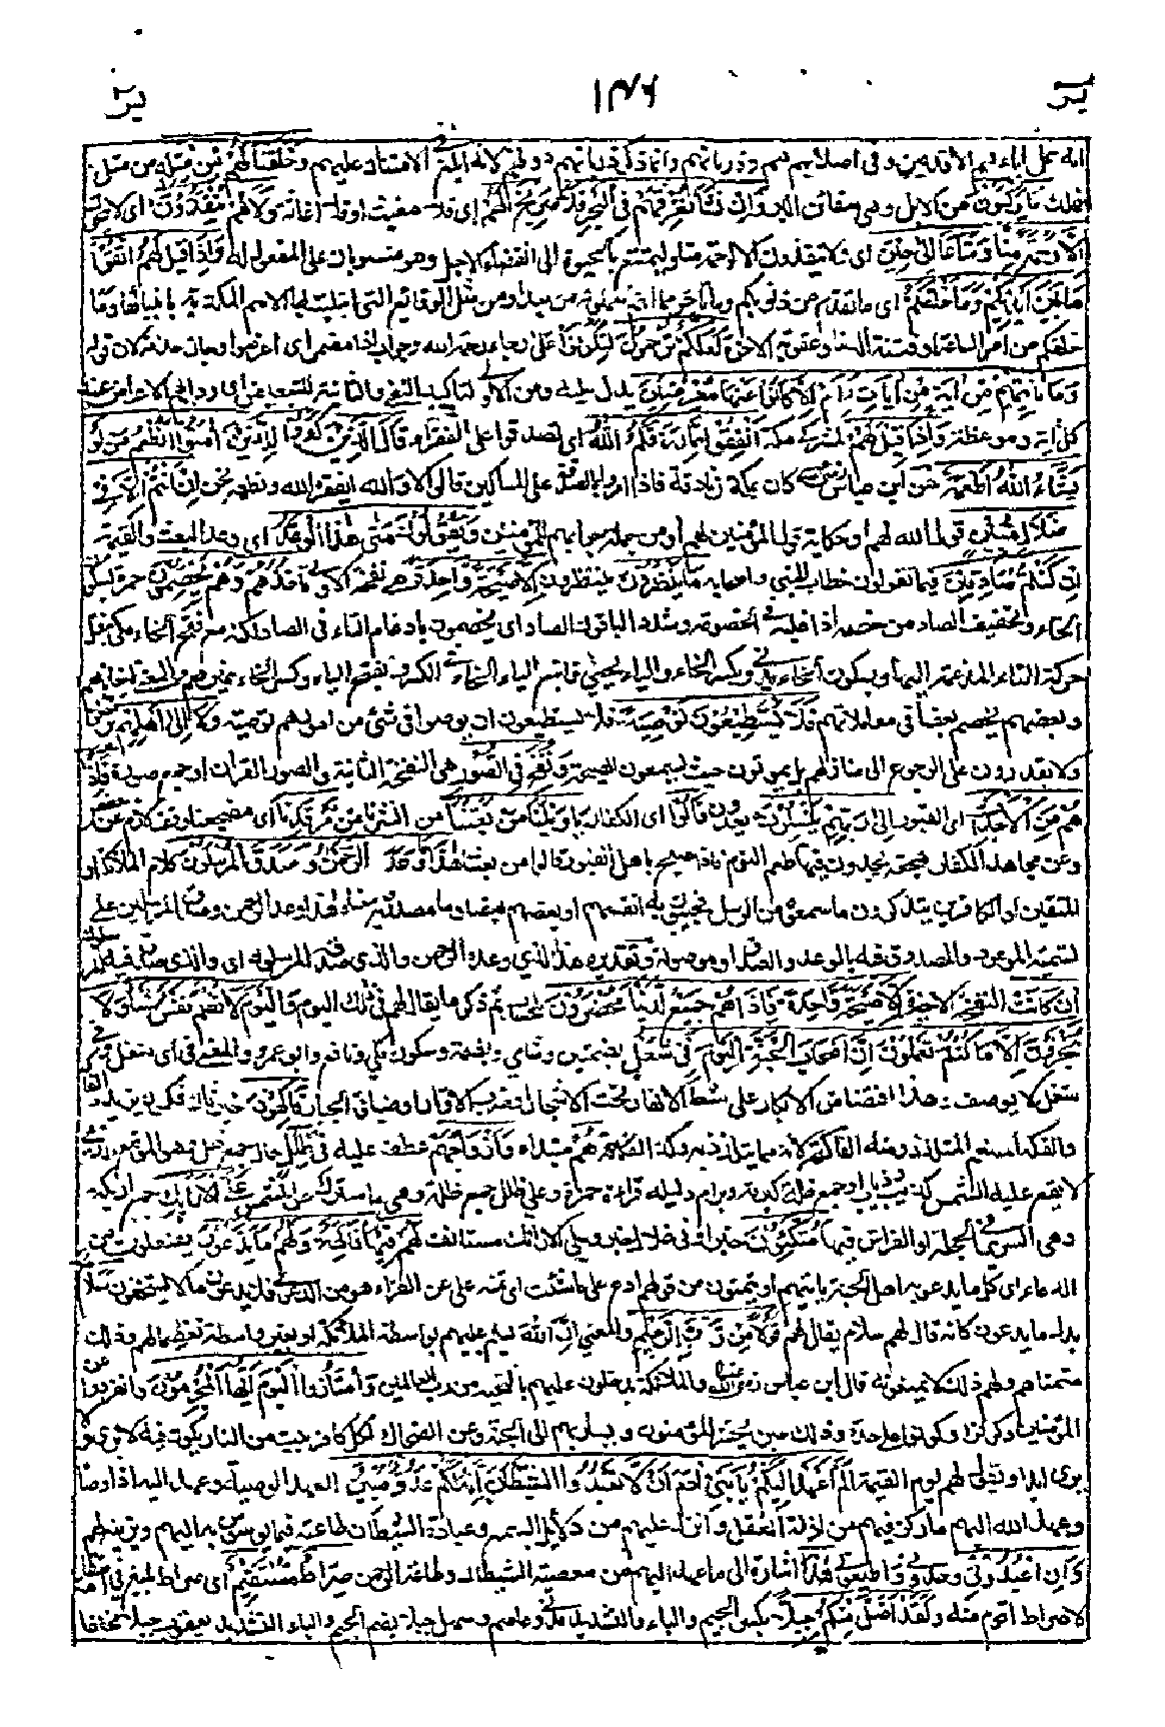 يس ١٤٦ يس
الله حمل اباءهم الأقدمين وفي اصلابهم هم وذرياتهم وانما ذكر ذرياتهم دونهم لانه ابلغ في الامتنان عليهم وخلقنا لهم من مثله من مثل
الفلك ما يركبون من الابل وهي سفائن البر وان نشأ نغرقهم في البحر فلا صريخ لهم اي فلا مغيث او فلا اغاثة ولا هم ينقذون اي لا ينجون
الا رحمة منا ومتاعا الى حين اي لا ينقذون الا لرحمة منا وليتمتع بالحيوة الى انقضاء الاجل وهو منصوبان على المفعول له واذا قيل لهم اتقوا
ما بين ايديكم وما خلفكم اي ما تقدم من ذنوبكم وما تأخر مما انتم من بعد او من مثل الوقائع التي ابتليت بها الامم المكذبة بانبيائها وما
خلفكم من امر الساعة او فتنة الدنيا وعقوبة الاخرة لعلكم ترحمون لتكونوا على رجاء رحمة الله وجواب اذا مضمر اي اعرضوا وجاز حذفه لان قوله
وما تأتيهم من اية من ايات ربهم الا كانوا عنها معرضين يدل عليه ومن الاولى لتأكيد النفي والثانية للتبعيض اي ودابهم الاعراض عند
كل اية وموعظة واذا قيل لهم لمشركي مكة انفقوا مما رزقكم الله اي تصدقوا على الفقراء قال الذين كفروا للذين امنوا انطعم من لو
يشاء الله اطعمه عن ابن عباس كان بمكة زنادقة فاذا امروا بالصدقة على المساكين قالوا لا والله ايفقره الله ونطعمه نحن ان انتم الا في
ضلال مبين قول الله لهم او حكاية قول المؤمنين لهم او من جملة جوابهم للمؤمنين ويقولون متى هذا الوعد اي وعد البعث والقيمة
ان كنتم صادقين فيما تقولون خطاب للنبي واصحابه ما ينظرون ينتظرون الا صيحة واحدة هي نفخة الاولى تأخذهم وهم يخصمون حمزة بسكون
الخاء وتخفيف الصاد من خصمه اذا غلبه في الخصومة وشدد الباقون الصاد اي يختصمون بادغام التاء في الصاد لكنه مع فتح الخاء مكي بنقل
حركة التاء المدغمة اليها وبسكون الخاء مدني وبكسر الخاء والياء يحيى فاتبع الياء الخاء في الكسر وبفتح الياء وكسر الخاء غيرهم والمعنى تأخذهم
وبعضهم يخصم بعضا في معاملاتهم فلا يستطيعون توصية فلا يستطيعون ان يوصوا في شئ من امورهم توصية ولا الى اهلهم يرجعون
ولا يقدرون على الرجوع الى منازلهم بل يموتون حيث يسمعون الصيحة ونفخ في الصور هي النفخة الثانية والصور القرن او جمع صورة فاذا
هم من الاجداث اي القبور الى ربهم ينسلون يعدون قالوا اي الكفار يا ويلنا من بعثنا من انشرنا من مرقدنا اي مضجعنا وقف لازم عن
وعن مجاهد للكفار هجعة يجدون فيها طعم النوم فاذا صيح باهل القبور قالوا من بعثنا هذا ما وعد الرحمن وصدق المرسلون كلام الملائكة او
المتقين او الكافرين يتذكرون ما سمعوه من الرسل فيجيبون به انفسهم او بعضهم بعضا وما مصدرية ومعناه هذا وعد الرحمن وصدق المرسلين على
تسمية الموعود والمصدوق فيه بالوعد والصدق او موصولة وتقديره هذا الذي وعده الرحمن والذي صدقه المرسلون اي والذي صدق فيه المرسلون
ان كانت النفخة الاخيرة الا صيحة واحدة فاذا هم جميع لدينا محضرون للحساب ثم ذكر ما يقال لهم في ذلك اليوم فاليوم لا تظلم نفس شيئا ولا
تجزون الا ما كنتم تعملون ان اصحاب الجنة اليوم في شغل بضمتين وشامي وبضمة وسكون مكي ونافع وابو عمرو والمعنى في اي شغل في
شغل لا يوصف هذا افتضاض الابكار على شط الانهار تحت الاشجار او ضرب الاوتار او ضيافة الجبار فاكهون خبر ثان فكهون يزيد
والفكه المتنعم المتلذذ ومنه الفاكهة لانه مما يتلذذ به وكذا الفكاهة هم مبتدأ وازواجهم عطف عليه في ظلال حال جمع ظل وهو الموضع الذي
لا يقع عليه الشمس كذئب وذياب او جمع ظلة كبرمة وبرام دليله قراءة حمزة وعلي ظلل جمع ظلة وهي ما سترك عن الشمس على الارائك جمع اريكة
وهي السرير في الحجلة او الفراش فيها متكئون خبر او في ظلال خبر وعلى الارائك مستأنف لهم فيها فاكهة ولهم ما يدعون يفتعلون من
الدعاء اي كل ما يدعو به اهل الجنة يأتيهم او يتمنون من قولهم ادع علي ما شئت اي تمنه علي عن الفراء هو من الدعوى ولا يدعون ما لا يستحقون سلام
بدل ما يدعون كانه قال لهم سلام يقال لهم قولا من رب رحيم والمعنى ان الله يسلم عليهم بواسطة الملائكة او بغير واسطة تعظيما لهم وذلك
متمناهم ولهم ذلك لا يمنعونه قال ابن عباس رضي الله عنهما والملائكة يدخلون عليهم بالتحية من رب العالمين وامتازوا اليوم ايها المجرمون وانفردوا عن
المؤمنين وكونوا على حدة وذلك حين يحشر المؤمنون ويسار بهم الى الجنة وعن الضحاك لكل كافر بيت من النار يكون فيه لا يرى ولا
يرى ابدا ويقول لهم يوم القيمة الم اعهد اليكم يا بني ادم ان لا تعبدوا الشيطان انه لكم عدو مبين العهد الوصية وعهد اليه اذا وصاه
وعهد الله اليهم ما ركزه فيهم من ادلة العقل وانزل عليهم من دلائل السمع وعبادة الشيطان طاعته فيما يوسوس به اليهم ويزينه لهم
وان اعبدوني وحدوني واطيعوني هذا اشارة الى ما عهد اليهم من معصية الشيطان وطاعة الرحمن صراط مستقيم اي صراط بليغ في استقامته
لا صراط اقوم منه ولقد اضل منكم جبلا بكسر الجيم والباء والتشديد مدني وعاصم وسهل جبلا بضم الجيم والباء والتشديد يعقوب جبلا مخففا